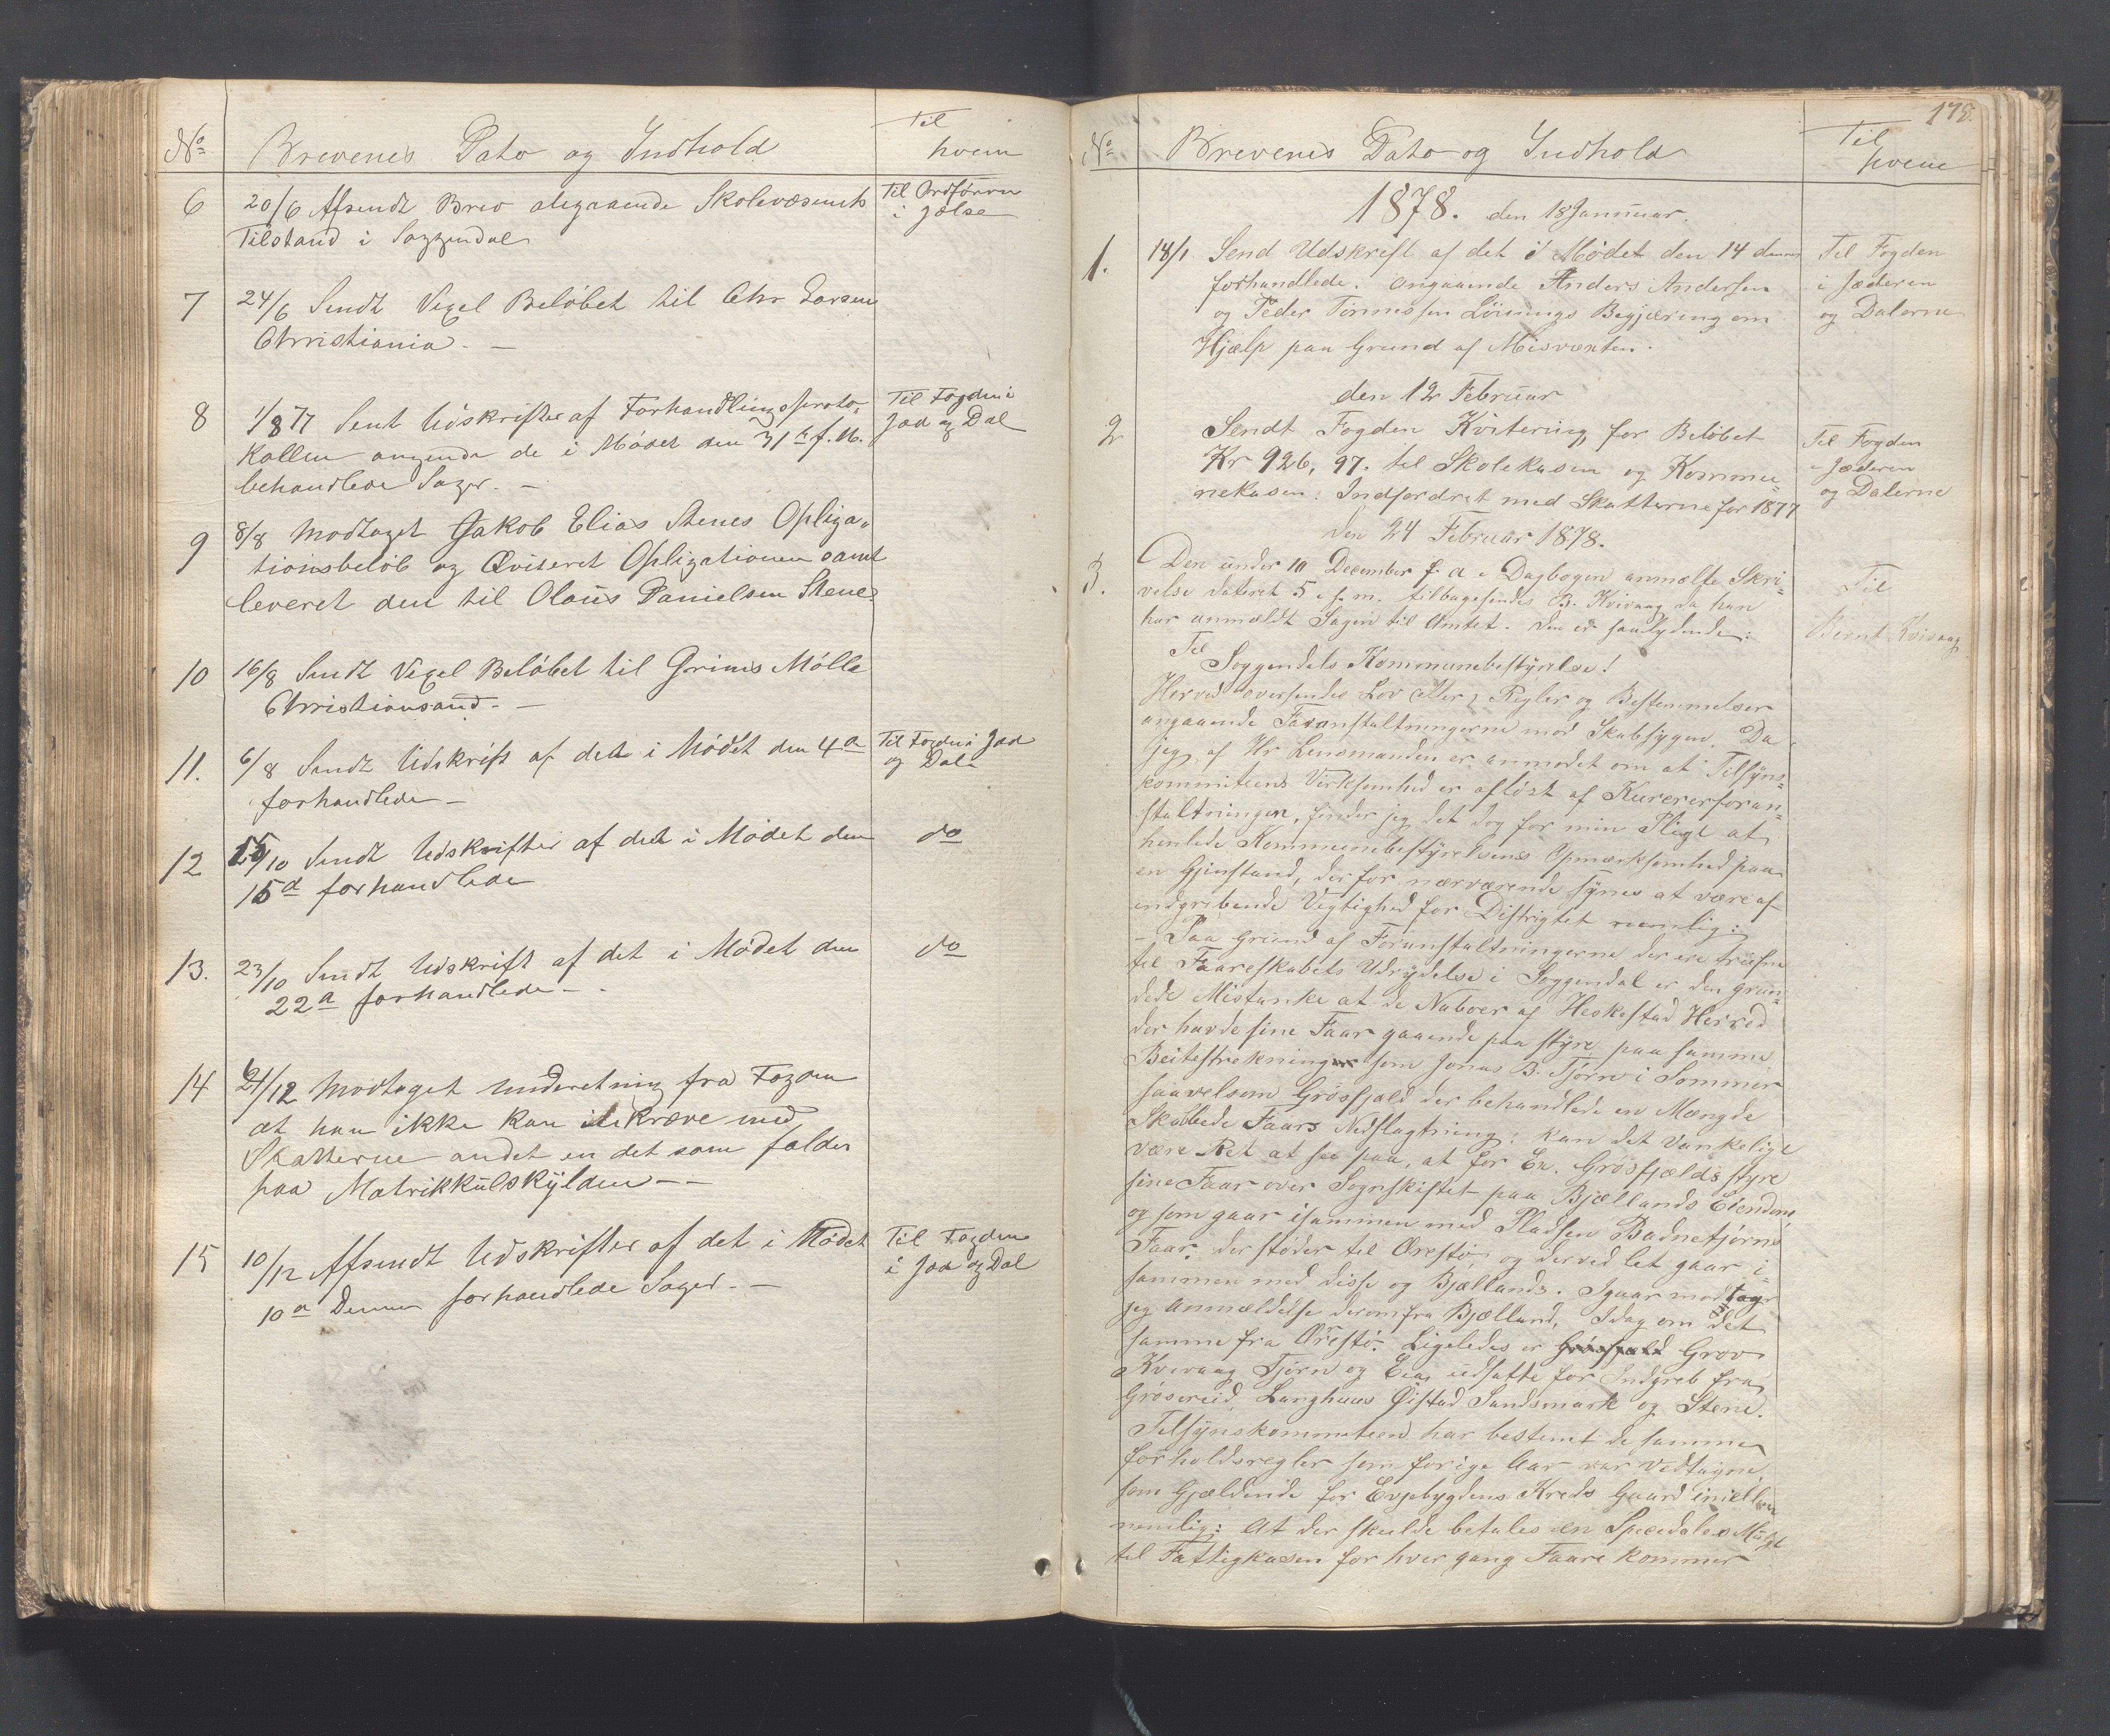 No Brevenes Dato og Indhold Til hvem
6 20/6 Afsendt Brev angaaende Skolevæsenets Til Ordføreren
Tilstand i Soggendal i Jølse
7 24/6 Sendt Vexel Beløbet til Chr Larsen
Christiania. —
8 1/8 77 Sent Udskrifter af Forhandlingsproto- Til Fogden i
kollen angende de i Mødet den 31te f. M. Jad og Dal
behandlede Sager. —
9 8/8 Modtaget Jakob Elias Stenes Opliga-
tionsbeløb og Qviteret Opligationen samt
leveret den til Olaus Danielsen Stene.
10 16/8 Sendt Vexel Beløbet til Grims Mølle
Christiansand. —
11. 6/8 Sendt Udskrift af det i Mødet den 4de Til Fogden i Jad
forhandlede — og Dal.
12 15/10 Sendt Udskrifter af det i Mødet den do
15d forhandlede
13. 23/10 Sendt Udskrift af det i Mødet den do
22d forhandlede — .
14 21/12 Modtaget underetning fra Fogden
at han ikke kan indkræve med
Skatterne andet en det som falder
paa Matrikkulskylden — —
15 10/12 Afsendt Udskrifter af det i Mødet Til Fogden
10d Dennes forhandlede Sager. — i Jad og Dal
178.
No Brevenes Dato og Indhold Til hvem
1878. den 18 Januar.
1. 18/1 Send Udskrift af det i Mødet den 14 dennes Til Fogden
forhandlede. angaaende Anders Andersen i Jæderen
og Peder Tønnessen Lønings Begjæring om og Dalerne
Hjælp paa Grund af Misvæxten.
den 12 Februar
2 Sendt Fogden Kvitering for Beløbet Til Fogden
Kr 926, 97. til Skolekasen og Kommu- i Jæderen
nekasen. Indfordret med Skatterne for 1877 og Dalerne
den 24 Februar 1878.
3. Den under 10 December f. a. i Dagbogen anmælte Skri- Til
velse dateret 5 s. m. tilbagesendes B. Kvivaag da han Bernt Kvivaag
har anmældt Sagen til Amtet. den er saalydende:
Til
Soggendels Kommunebestyrelse!
Herved oversendes Lov eller Regler og Bestemmelser
angaaende Foranstaltningerne mod Skabsygen. Da
jeg af Hr Lensmanden er anmodet om at Tilsyns-
kommiteens Virksomhed er afløst af Kurererforan-
staltningen, finder jeg det dog for min Pligt at
henlede Kommunebestyrelsens Opmærksomhed paa
en Gjenstand, der for nærværende synes at være af
indgribende Vigtighed for Distrigtet nemlig:
— Paa Grund af Foranstaltningerne der ere trufne
til Faareskabets Udrydelse i Soggendal er den grun-
dede Mistanke at de Naboer af Heskestad Herred
der havde sine Faar gaaende paa styre paa samme
Beitestrekning som Jonas B. Tjørn i Sommer
saavelsom Grøsfjæld der behandlede en Mængde
Skabede Faars Nedslagtning; kan det vankeligt
være Ret at se paa, at for Ex. Grøsfjælds styre
sine Faar over Sognskiftet paa Bjællands Eiendom,
og som gaar isammen med Pladsen Badnetjørns
Faar. der støder til Ørestø, og derved let gaar i-
sammen med disse og Bjællands. Igaar modtager
jeg Anmældelse derom fra Bjælland, Idag om det
samme fra Ørestø. Ligeledes er Grøsfjæld Grov
Kvivaag Tjørn og Eia udsatte for Indgreb fra
Grøsereid Langhuus Øistad Sandsmark og Stene.
Tilsynskommiteen har bestemt de samme
forholdsregler som forige Aar var vedtagne
som Gjældende for Evjebygdens Kreds Gaard imellem
nemlig: At der skulde betales en Speciedaler Mulgt
til Fattigkasen for hver gang Faare kommer